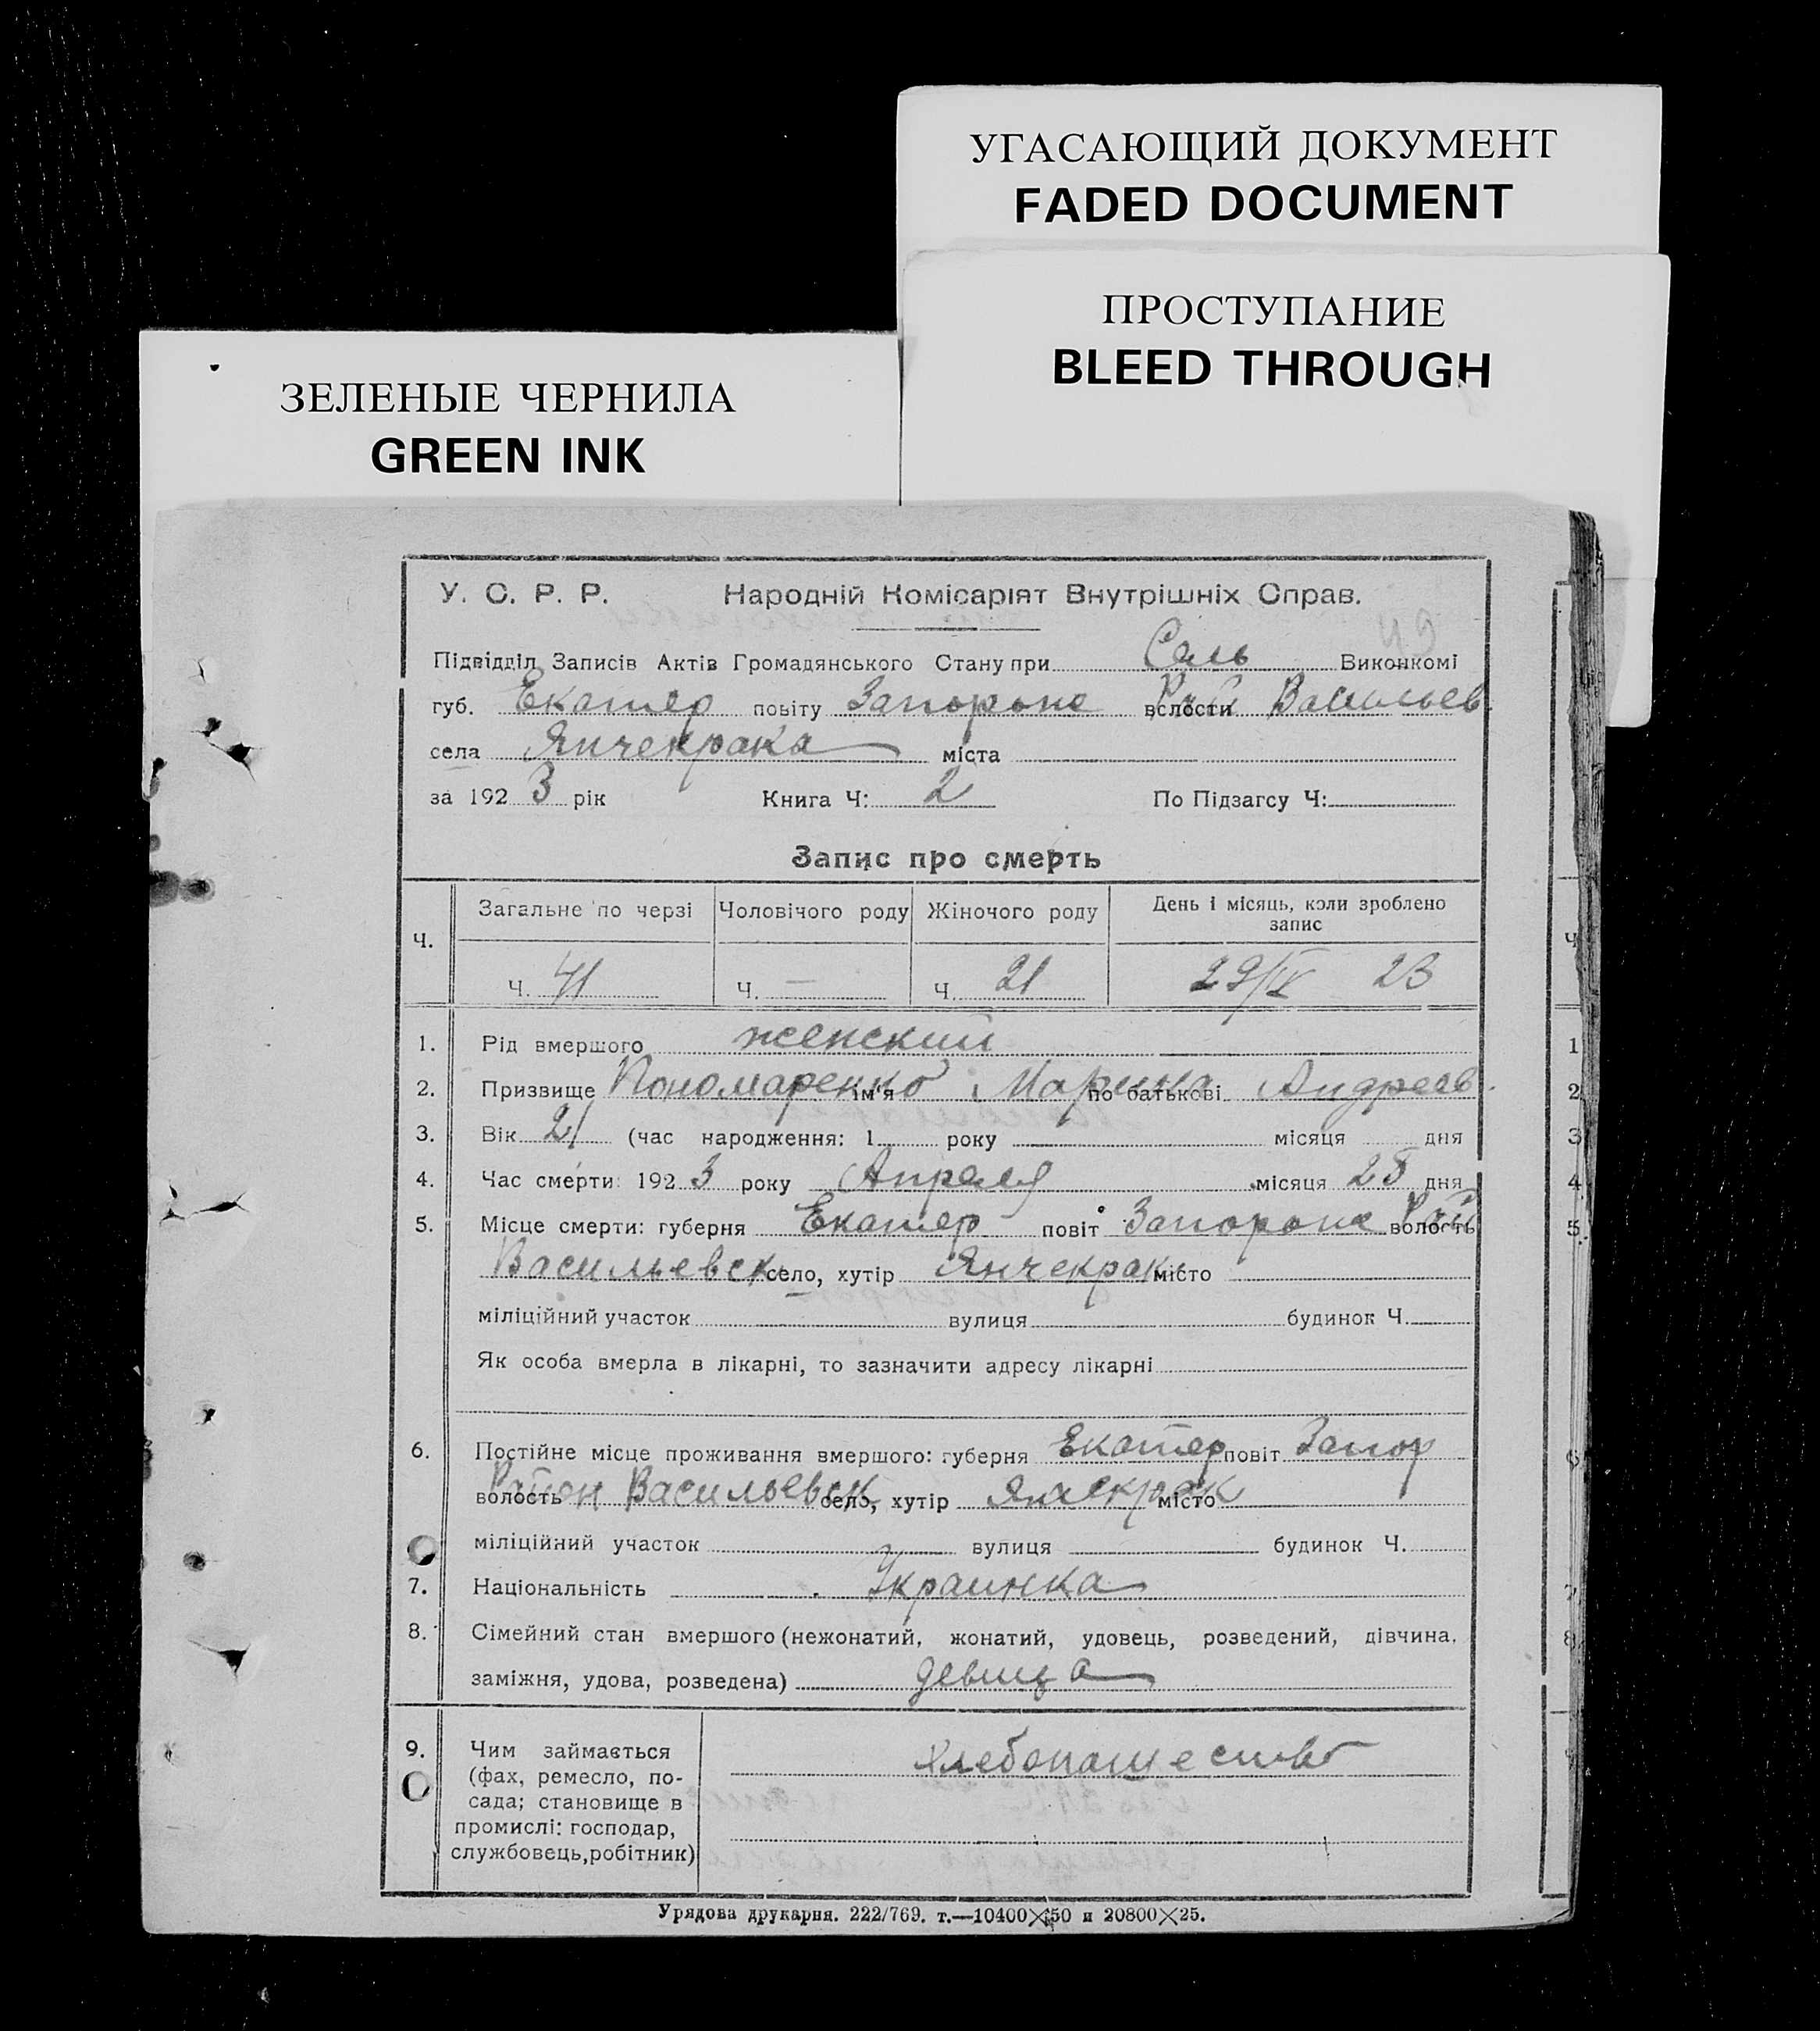 УГАСАЮЩИЙ ДОКУМЕНТ
FADED DOCUMENT
ПРОСТУПАНИЕ
BLEED THROUGH
ЗЕЛЕНЫЕ ЧЕРНИЛА
GREEN INK
У. С. Р. Р. Народній Комісаріят Внутрішніх Справ.
Підвідділ Записів Актів Громадянського Стану при Сель Виконкомі
губ. Екатер повіту Запорож волости Рай Васильев
села Янчекрака міста
за 1923 рік Книга Ч: 2 По Підзагсу Ч:
Запис про смерть
Ч. Загальне по черзі Чоловічого роду Жіночого роду День і місяць, коли зроблено запис
Ч. 41 Ч. — Ч. 21 29/IV 23
1. Рід вмершого женский
2. Призвище Пономаренко ім'я Марина по батькові Андреев.
3. Вік 21 (час народження: 1 року місяця дня
4. Час смерти: 1923 року Апреля місяця 25 дня
5. Місце смерти: губерня Екатер повіт Запорож волость Рай
Васильевск село, хутір Янчекрак місто
міліційний участок вулиця будинок Ч.
Як особа вмерла в лікарні, то зазначити адресу лікарні
6. Постійне місце проживання вмершого: губерня Екатер повіт Запор
волость Район Васильевск село, хутір Янчекрак місто
міліційний участок вулиця будинок Ч.
7. Національність Украинка
8. Сімейний стан вмершого (нежонатий, жонатий, удовець, розведений, дівчина,
заміжня, удова, розведена) девица
9. Чим займається Хлебопашество
(фах, ремесло, по-
сада; становище в
промислі: господар,
службовець, робітник)
Урядова друкарня. 222/769. т.—10400×50 и 20800×25.